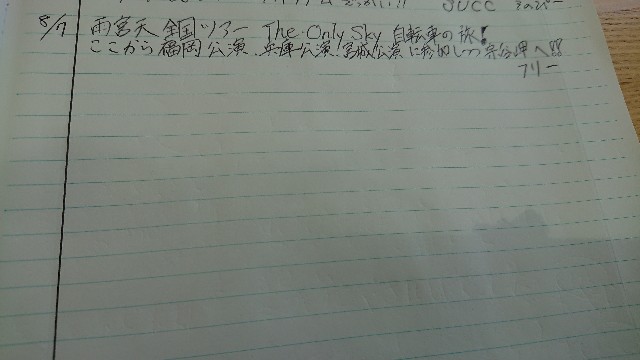 JUCC
8/7 雨宮天 全国ツアー The Only Sky 自転車の旅!
ここから福岡公演、兵庫公演、宮城公演に参加しつつ宗谷岬へ!!
フリー